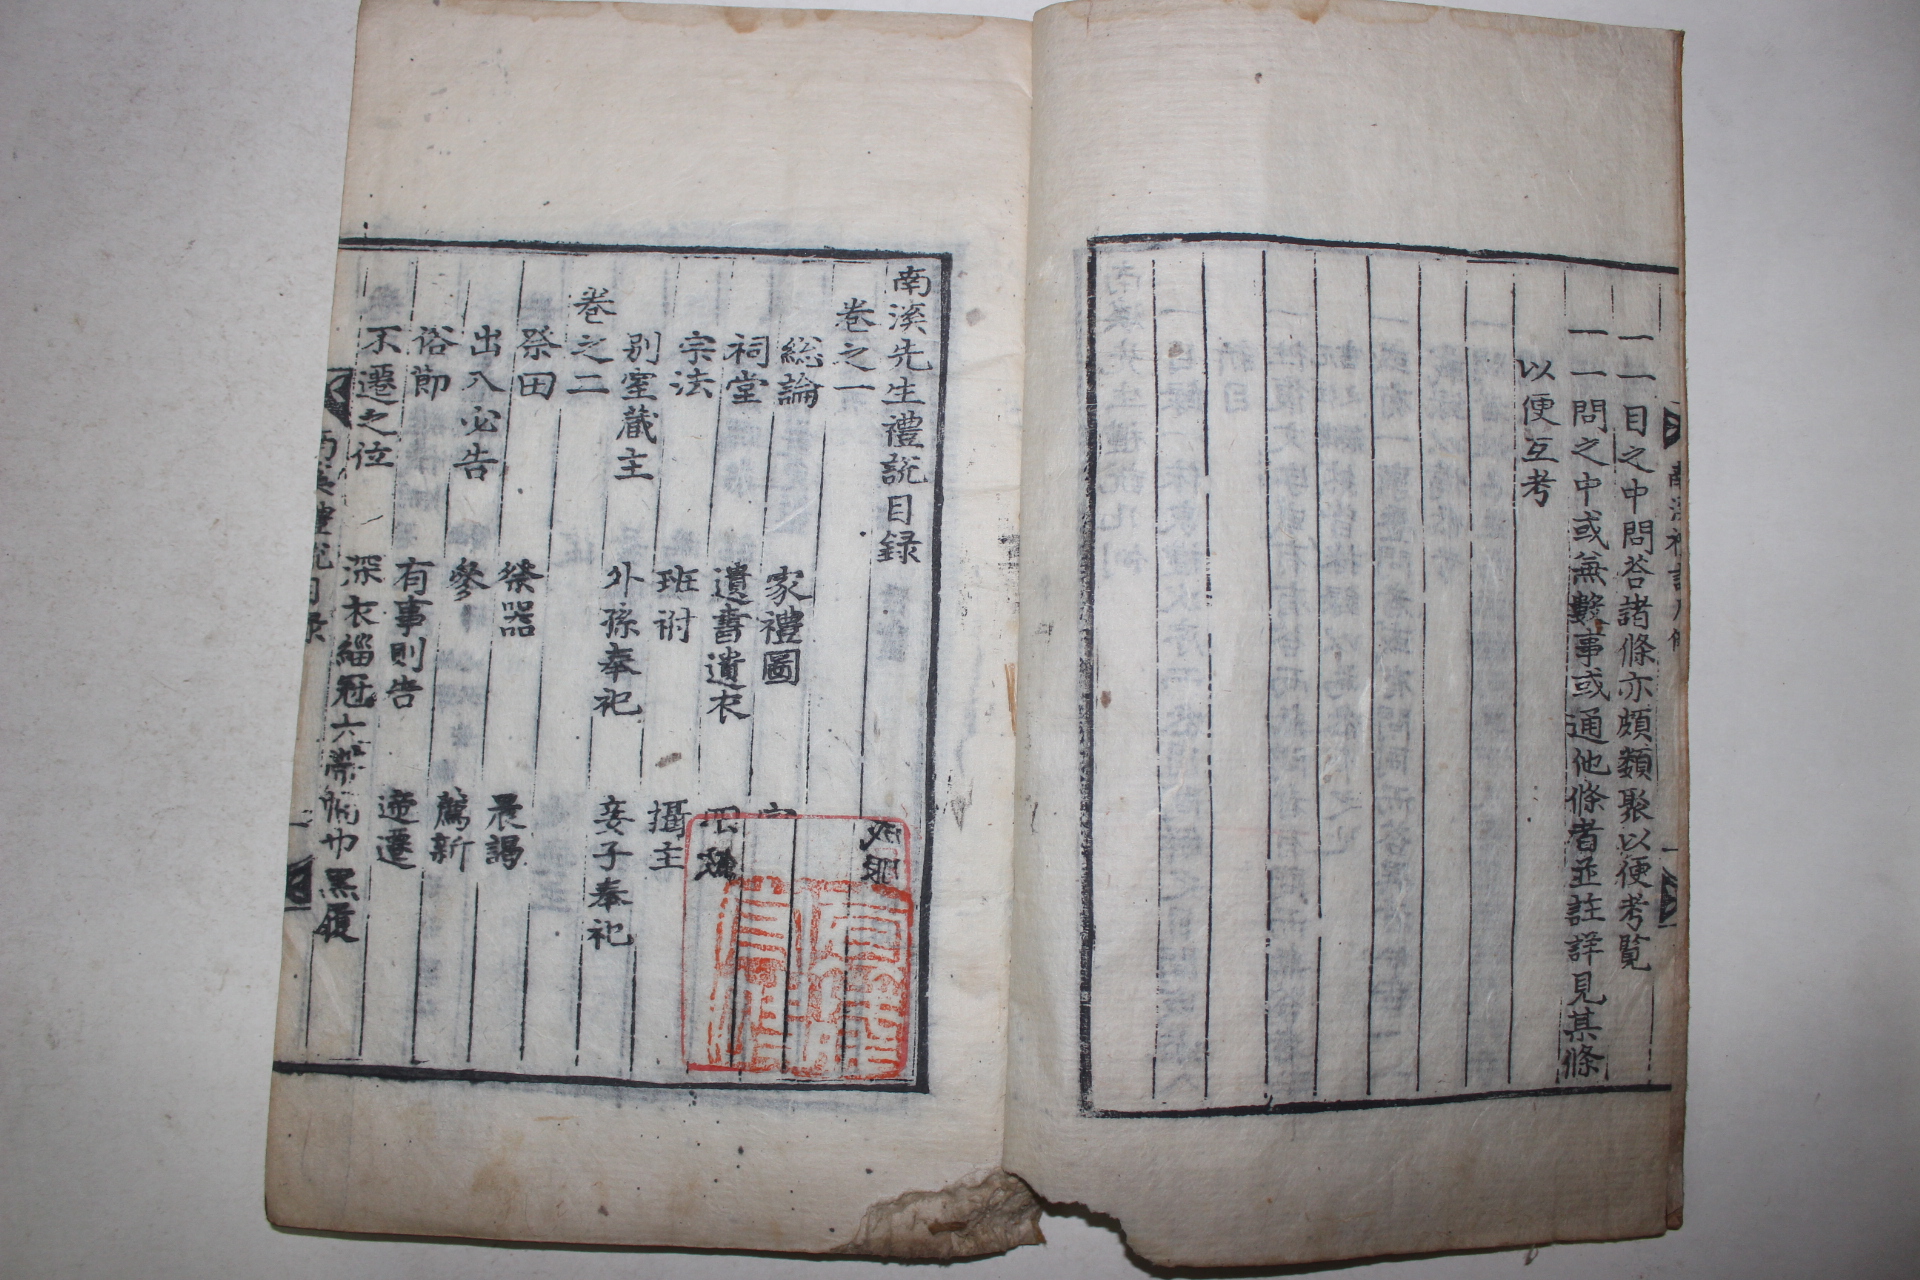 一一目之中問答諸條亦頗類聚以便考覧
一一問之中或無數事或通他條者並註詳見其條
以便互考
南溪先生禮説目録
巻之一
総論 家禮圖
祠堂 遺書遺衣
宗法 班祔 攝主
別室蔵主 外孫奉祀 妾子奉祀
巻之二
祭田 祭器 晨謁
出入必告 參 薦新
俗節 有事則告 遞遷
不遷之位 深衣緇冠 幅巾黑履